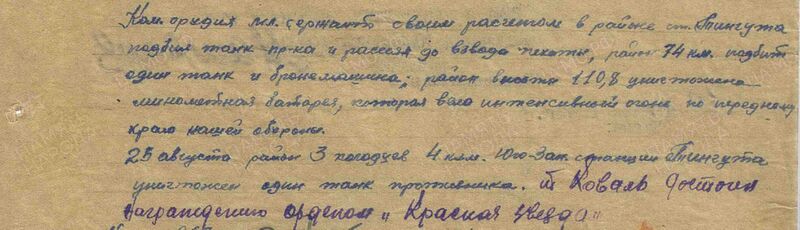 Ком. орудия мл. сержант своим расчетом в районе ст. Тингута
подбил танк пр-ка и рассеял до взвода пехоты, район 74 км. подбит
один танк и бронемашина; район высоты 110,8 уничтожена
минометная батарея, которая вела интенсивный огонь по переднему
краю нашей обороны.
25 августа район 3 колодцев 4 клм. Юго-Зап. станции Тингута
уничтожен один танк противника. т. Коваль достоин
награждению орденом „Красная звезда"